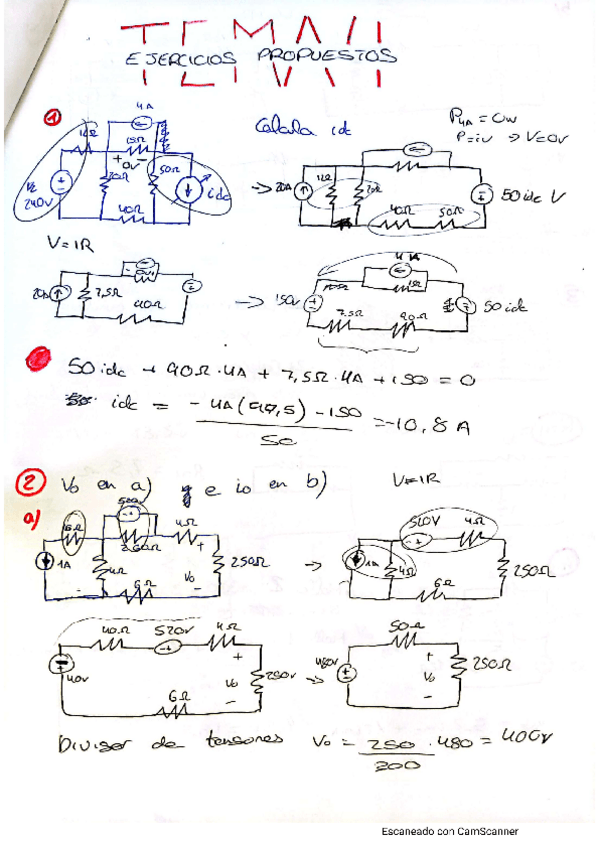 TEMA VI
EJERCICIOS PROPUESTOS
1
Calcula idc
P4A = 0W
P=iv → V=0V
4A
12Ω
15Ω
+ 0V -
20Ω
50Ω
idc
240V
40Ω
20A
12Ω
20Ω
40Ω
50Ω
50 idc V
V=IR
20A
7,5Ω
40Ω
150V
4A
15Ω
7,5Ω
90Ω
50 idc
50 idc + 90Ω·4A + 7,5Ω·4A + 150 = 0
idc = - 4A(97,5) - 150 = -10,8 A
50
2 Vo en a) e io en b)
V=IR
a)
6Ω
520V
260Ω
4Ω
1A
4Ω
6Ω
Vo
250Ω
520V
4Ω
1A
4Ω
6Ω
250Ω
40Ω
520V
4Ω
40V
6Ω
Vo
250V
50Ω
480V
Vo
250Ω
Divisor de tensiones Vo = 250 · 480 = 400V
300
Escaneado con CamScanner